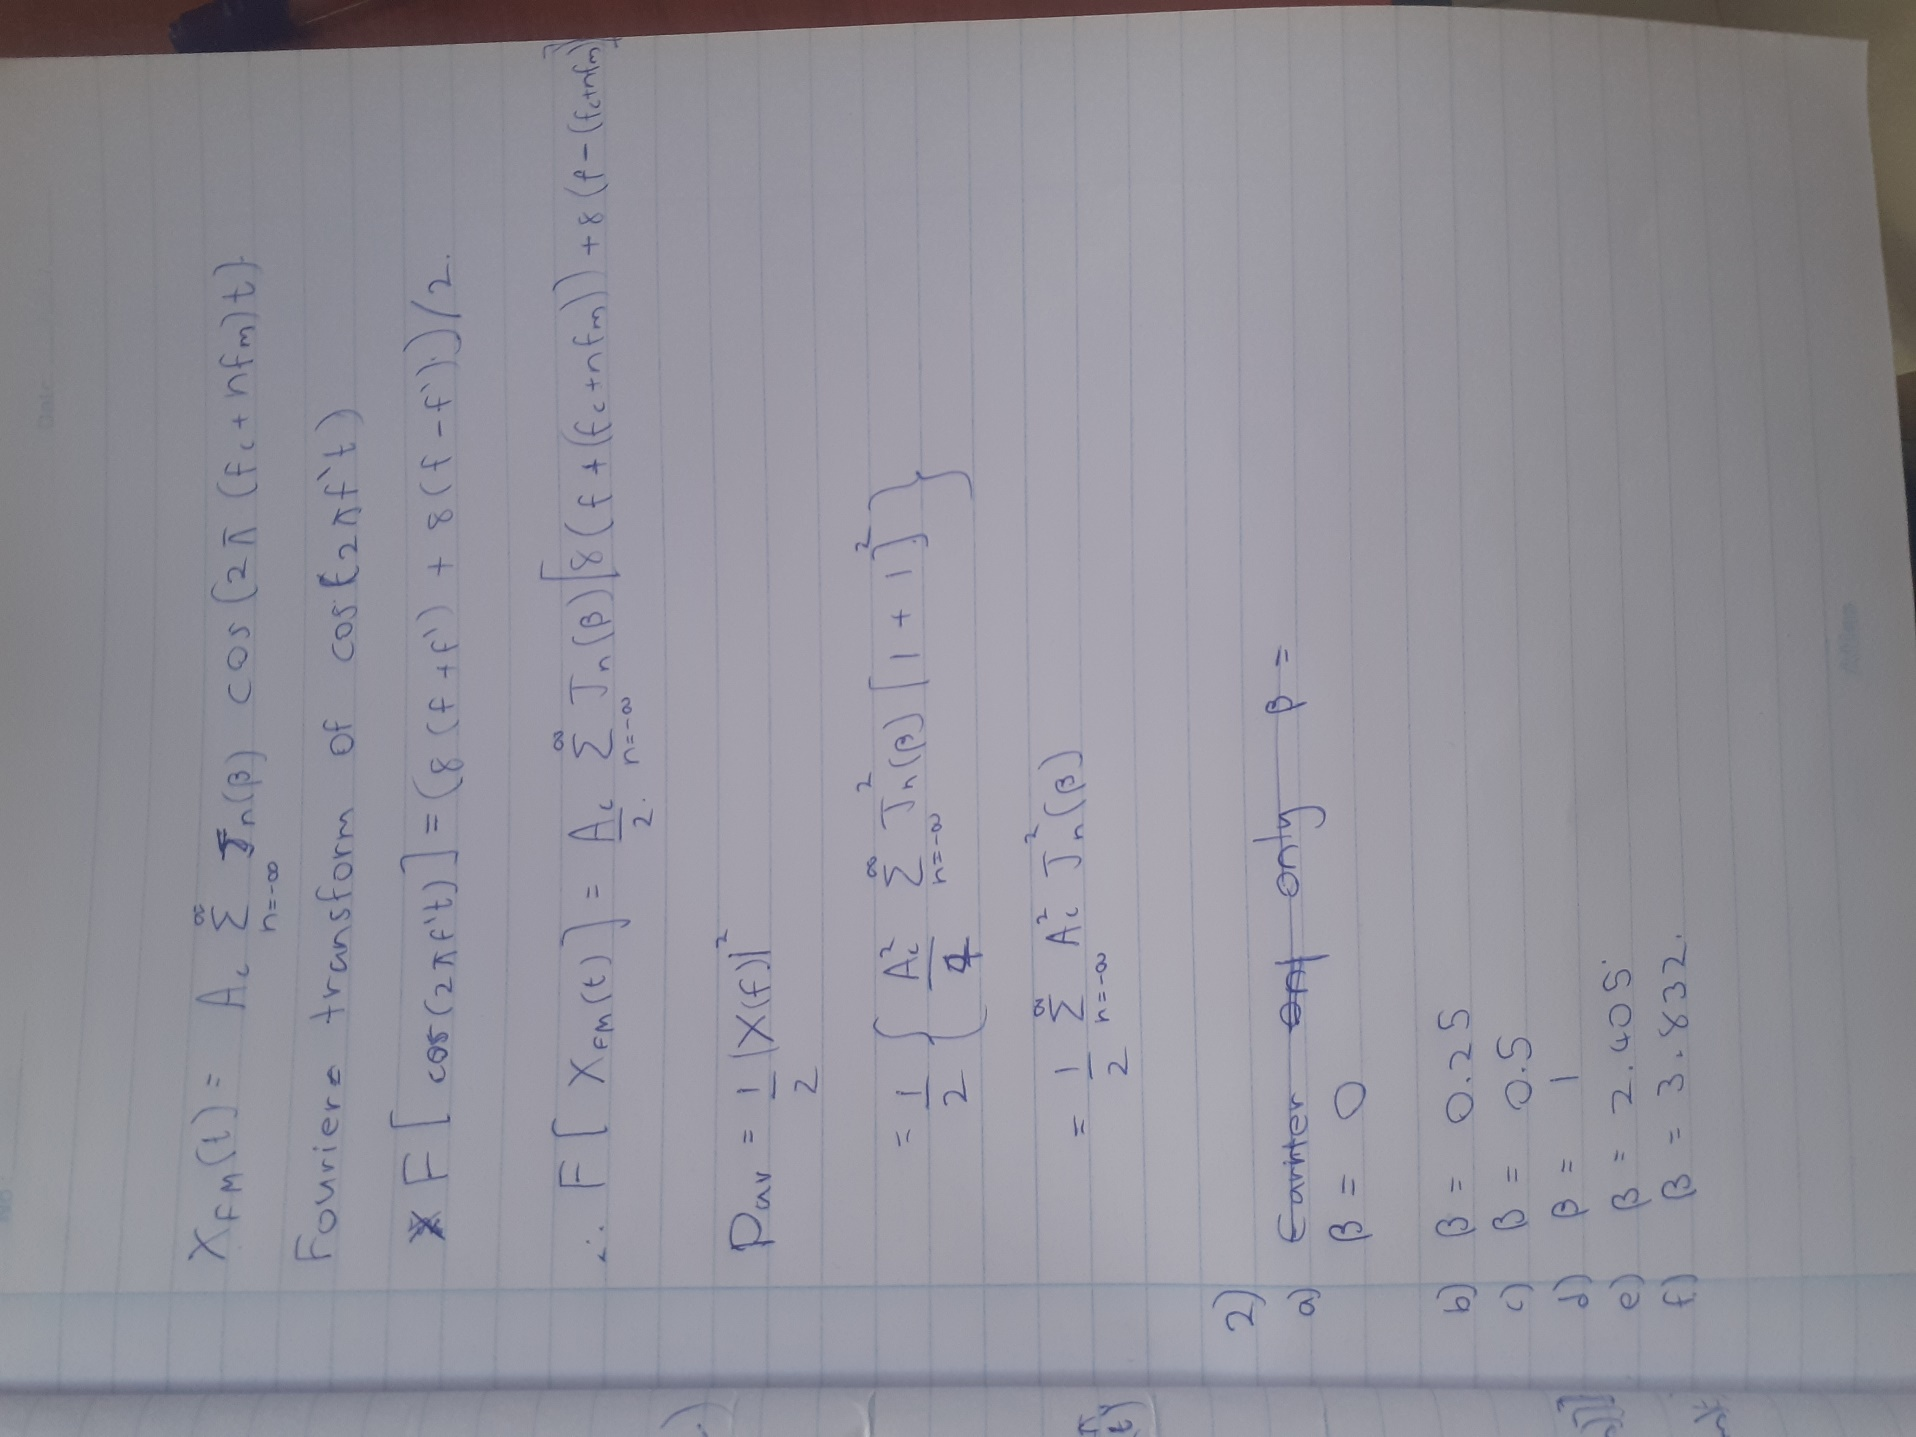 X_FM(t) = A_c ∞Σn=-∞ J_n(β) cos(2π(f_c + nf_m)t)
Fouriere transform of cos(2πf't)
F[cos(2πf't)] = (8(f+f') + 8(f-f'))/2.
∴ F[X_FM(t)] = A_c/2. ∞Σn=-∞ J_n(β)[8(f+(f_c+nf_m)) + 8(f-(f_c+nf_m))]
Pav = 1/2 |X(f)|²
= 1/2 { A_c²/4 ∞Σn=-∞ J_n²(β) [1+1]² }
= 1/2 ∞Σn=-∞ A_c² J_n²(β)
2)
a) Carrier onl only β =
β = 0
b) β = 0.25
c) β = 0.5
d) β = 1
e) β = 2.405
f) β = 3.832.